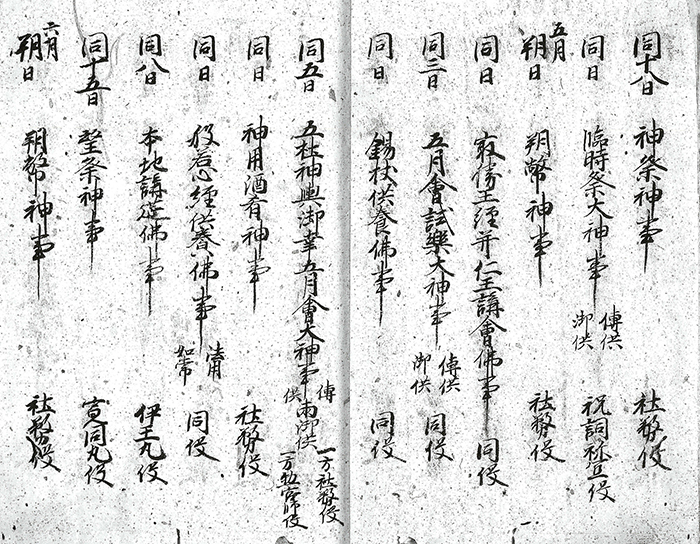 同十八日 神祭神事 社務役
同日 臨時祭大神事 傳供 御供 祝詞祢宜役
五月朔日 朔幣神事 社務役
同日 最勝王経并仁王講會佛事 同役
同三日 五月會試樂大神事 傳供 御供 同役
同日 錫杖供養佛事 同役
同五日 五社神輿御幸五月會大神事 傳供 両御供 一方社務役 一方
同日 神用酒肴神事 社務役
同日 般若心経供養佛事 法用如常 同役
同八日 本地講莚佛事 伊王丸役
同十五日 神事 同丸役
六月朔日 朔幣神事 社務役